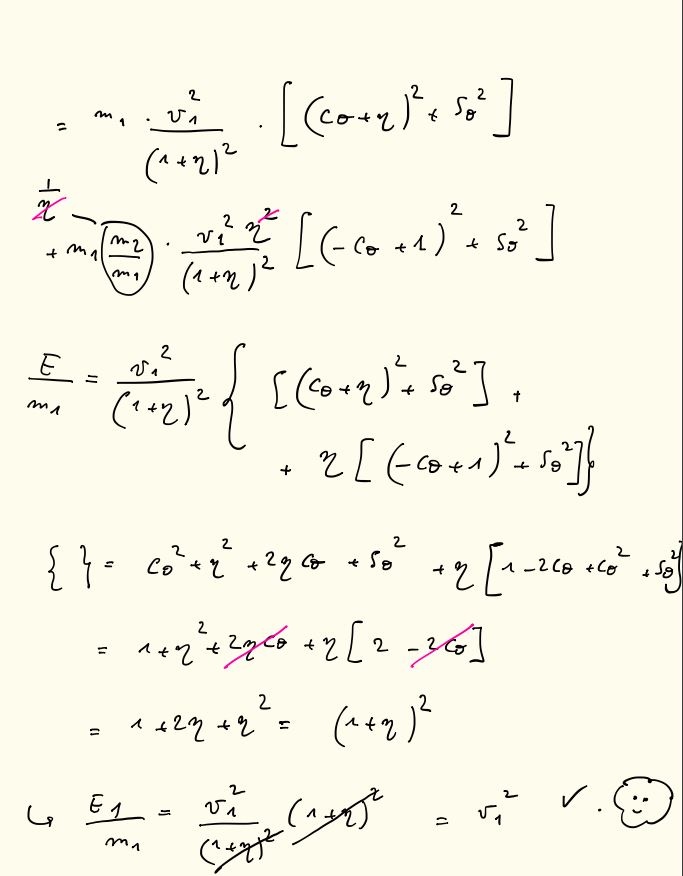 = m₁ · v₁²/(1+η)² · [(cθ+η)² + sθ²]
1/η
+ m₁ (m₂/m₁) · v₁² η²/(1+η)² [(-cθ +1)² + sθ²]
E/m₁ = v₁²/(1+η)² { [(cθ+η)² + sθ²] +
+ η [(-cθ+1)² + sθ²]}
{ } = cθ² + η² + 2η cθ + sθ² + η [1 - 2cθ + cθ² + sθ²]
= 1+η² + 2ηcθ + η [2 - 2cθ]
= 1 + 2η + η² = (1+η)²
↳ E1/m₁ = v₁²/(1+η)² (1+η)² = v₁² ✓.